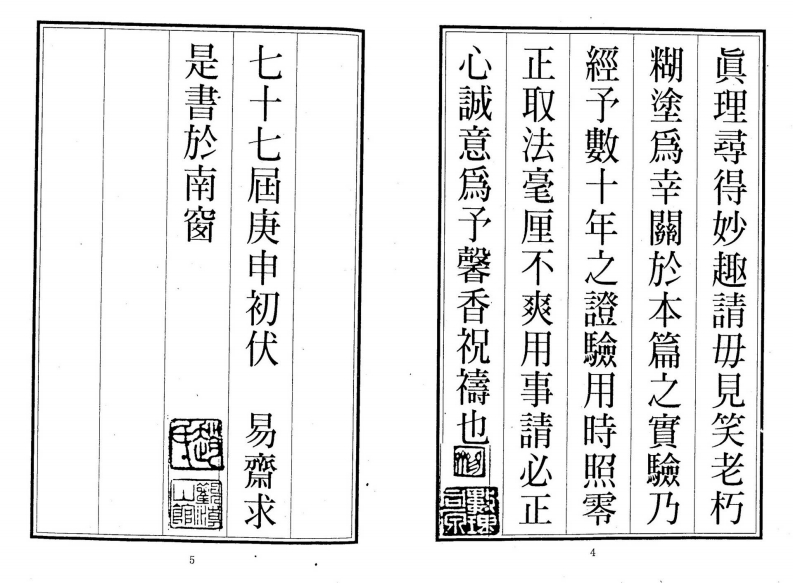 眞理尋得妙趣請毋見笑老朽
糊塗爲幸關於本篇之實驗乃
經予數十年之證驗用時照零
正取法毫厘不爽用事請必正
心誠意爲予馨香祝禱也
4
七十七屆庚申初伏 易齋求
是書於南窗
5